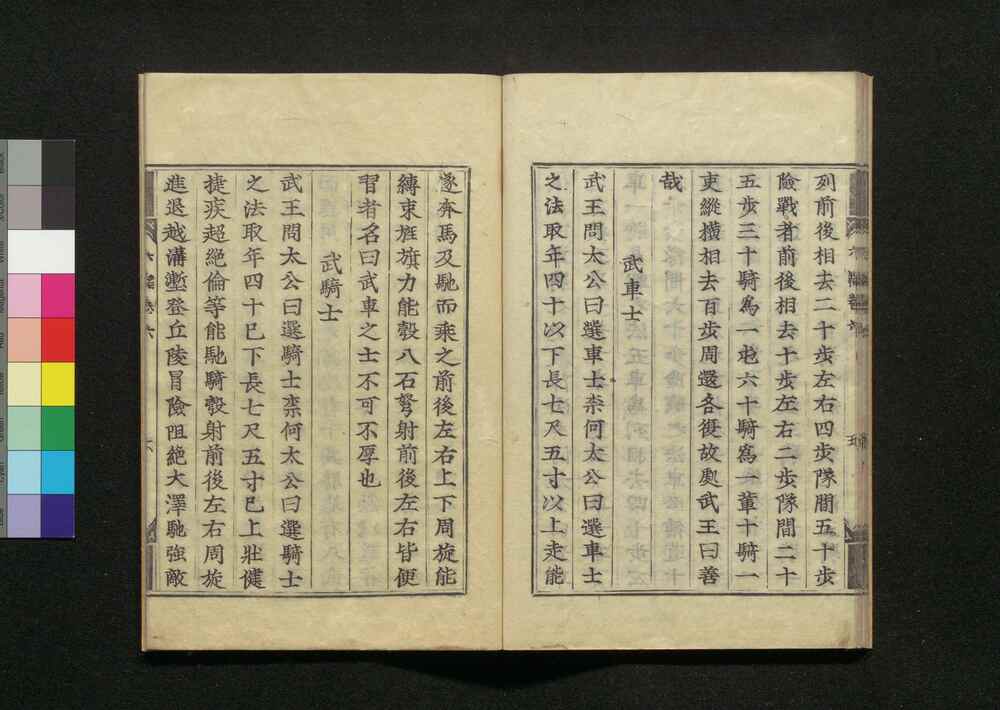 列前後相去二十步左右四步隊間五十步
險戰者前後相去十步左右二步隊間二十
五步三十騎爲一屯六十騎爲一輩十騎一
吏縱橫相去百步周還各復故處武王曰善
哉
武車士
武王問太公曰選車士柰何太公曰選車士
之法取年四十以下長七尺五寸以上走能
逐奔馬及馳而乘之前後左右上下周旋能
縛束旌旗力能彀八石弩射前後左右皆便
習者名曰武車之士不可不厚也
武騎士
武王問太公曰選騎士柰何太公曰選騎士
之法取年四十已下長七尺五寸已上壯健
捷疾超絶倫等能馳騎彀射前後左右周旋
進退越溝塹登丘陵冒險阻絶大澤馳強敵
六韜卷六
六